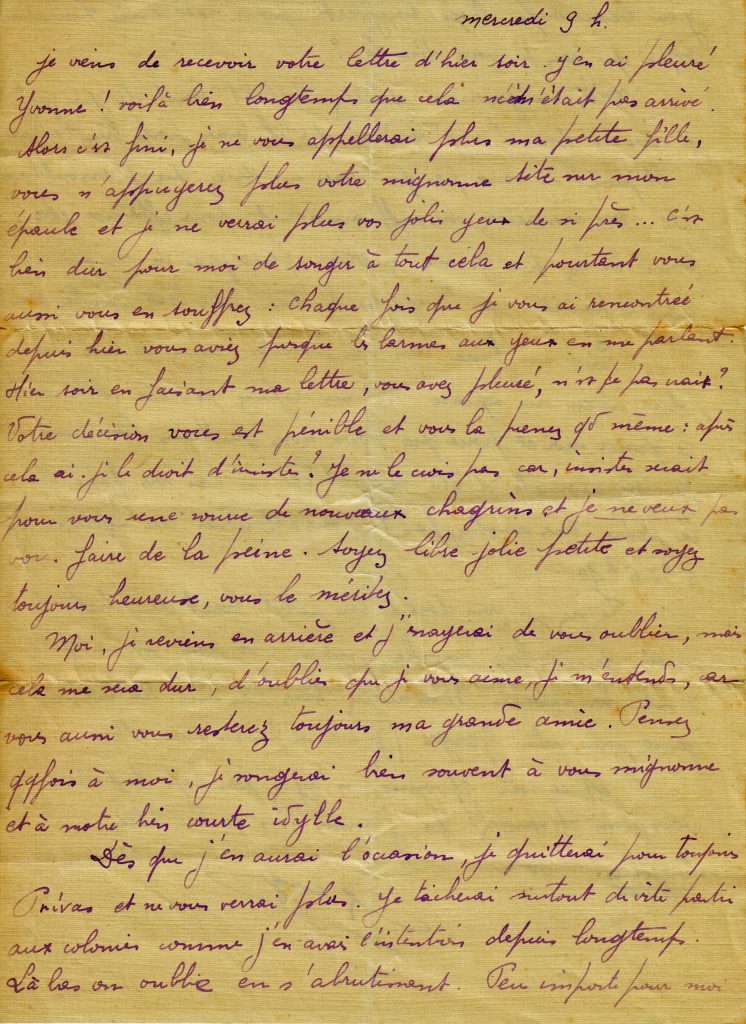 mercredi 9 h.
je viens de recevoir votre lettre d'hier soir. j'en ai pleuré
Yvonne ! voilà bien longtemps que cela n'était pas arrivé.
Alors c'est fini, je ne vous appellerai plus ma petite fille,
vous n'appuyerez plus votre mignonne tête sur mon
épaule et je ne verrai plus vos jolis yeux de si près... c'est
bien dur pour moi de songer à tout cela et pourtant vous
aussi vous en souffrez : chaque fois que je vous ai rencontrée
depuis hier vous aviez presque les larmes aux yeux en me parlant.
Hier soir en faisant ma lettre, vous avez pleuré, n'est ce pas vrai ?
Votre décision vous est pénible et vous la prenez qd même : après
cela ai-je le droit d'insister ? Je ne le crois pas car, insister serait
pour vous une source de nouveaux chagrins et je ne veux pas
vous faire de la peine. Soyez libre jolie petite et soyez
toujours heureuse, vous le méritez.
Moi, je reviens en arrière et j'essayerai de vous oublier, mais
cela me sera dur, d'oublier que je vous aime, je m'entends, car
vous aussi vous resterez toujours ma grande amie. Pensez
qqfois à moi, je songerai bien souvent à vous mignonne
et à notre bien courte idylle.
Dès que j'en aurai l'occasion, je quitterai pour toujours
Privas et ne vous verrai plus. Je tacherai surtout de vite partir
aux colonies comme j'en avais l'intention depuis longtemps.
Là bas on oublie en s'abrutissant. Peu importe pour moi